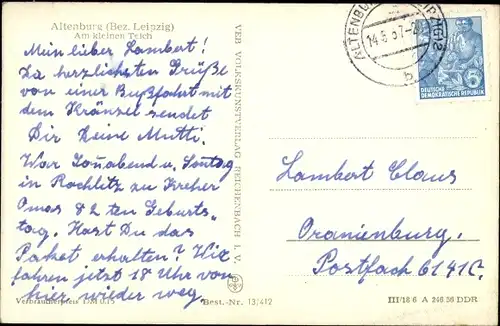 Altenburg (Bez. Leipzig)
Am kleinen Teich
Mein lieber Lambert!
Die herzlichsten Grüße
von einer Bußfahrt mit
dem Kränzel sendet
Dir Deine Mutti.
War Sonabend u. Sontag
in Rochlitz zu Kreher
Omas 82 ten Geburts-
tag. Hast Du das
Paket erhalten? Wir
fahren jetzt 18 Uhr von
hier wieder weg.
Verbraucherpreis DM 0.15
Best.-Nr. 13/412
VEB VOLKSKUNSTVERLAG REICHENBACH I. V.
ALTENBURG
14.6.57-2
b
DEUTSCHE
DEMOKRATISCHE REPUBLIK
Lambert Claus
Oranienburg.
Postfach 6141C.
III/18 6 A 246 56 DDR